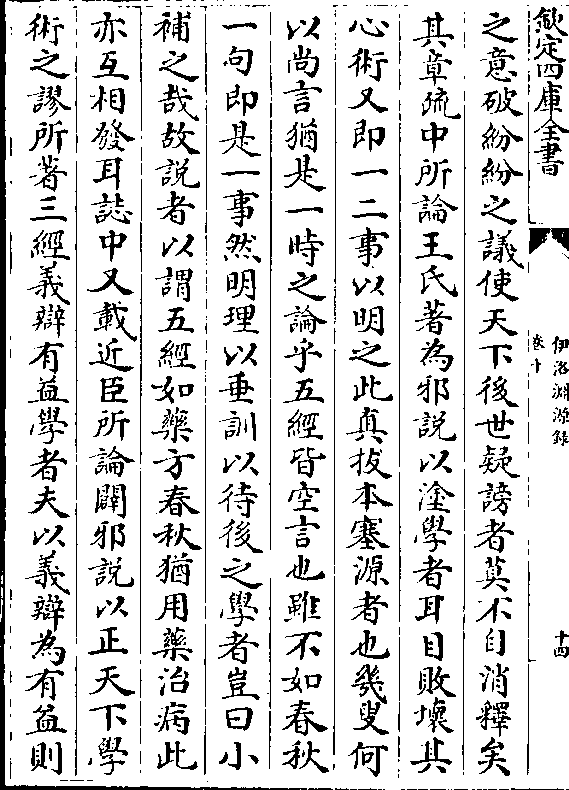 欽定四庫全書
伊洛淵源録
卷十
十四
之意破紛紛之議使天下後世疑謗者莫不自消釋矣
其章疏中所論王氏著為邪說以塗學者耳目敗壞其
心術又即一二事以明之此真拔本塞源者也幾叟何
以尚言猶是一時之論乎五經皆空言也雖不如春秋
一句即是一事然明理以垂訓以待後之學者豈曰小
補之哉故説者以謂五經如藥方春秋猶用藥治病此
亦互相發耳誌中又載近臣所論闢邪説以正天下學
術之謬所著三經義辯有益學者夫以義辯為有益則